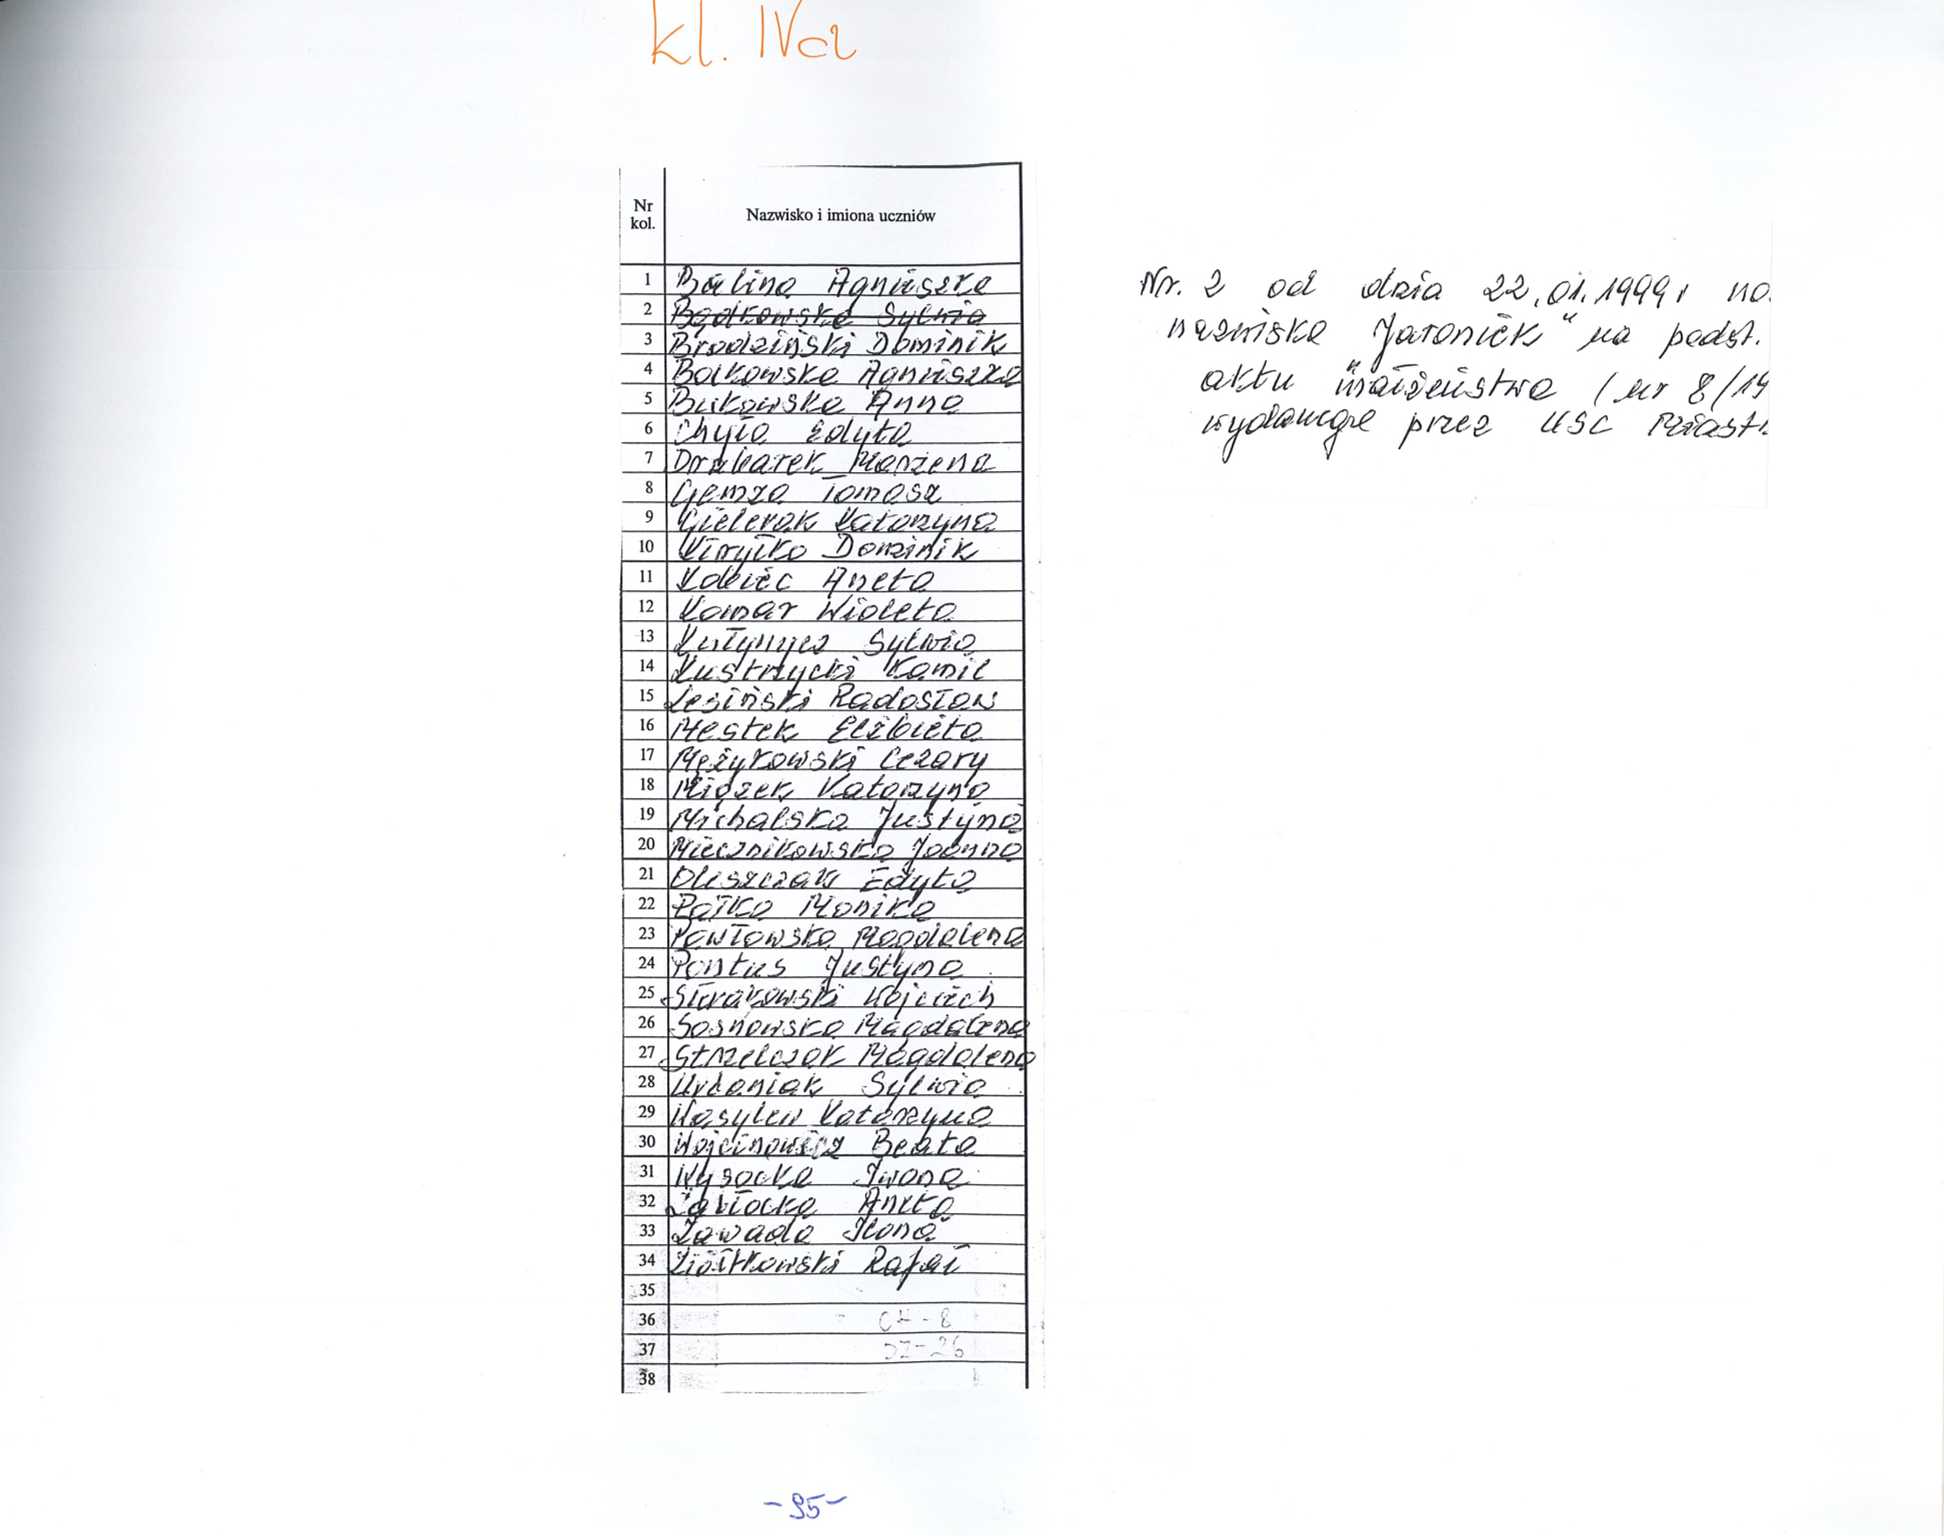 kl. IVa
Nr kol.
Nazwisko i imiona uczniów
1 Balina Agnieszka
2 Bądkowska Sylwia
3 Brodziński Dominik
4 Bolkowska Agnieszka
5 Bukowska Anna
6 Chyła Edyta
7 Drabarek Marzena
8 Gemza Tomasz
9 Gielerak Katarzyna
10 Kiryłko Dominik
11 Kobiec Aneta
12 Komar Wioleta
13 Kutynycz Sylwia
14 Kustrzycki Kamil
15 Lesiński Radosław
16 Mestek Elżbieta
17 Mężykowski Cezary
18 Miązek Katarzyna
19 Michalska Justyna
20 Miecznikowska Joanna
21 Oleszczak Edyta
22 Pałka Monika
23 Pawłowska Magdalena
24 Pontus Justyna
25 Sierakowski Wojciech
26 Sosnowska Magdalena
27 Strzelczak Magdalena
28 Urbaniak Sylwia
29 Wasylew Katarzyna
30 Wojcinowicz Beata
31 Wysocka Iwona
32 Zabłocka Aneta
33 Zawada Ilona
34 Ziółkowski Rafał
35
36 CH - 8
37 DZ - 26
38
Nr. 2 od dnia 22.01.1999r na
nazwisko "Jaroniek" na podst.
aktu małżeństwa (nr 8/19
wydanego przez USC Miast
- 95 -